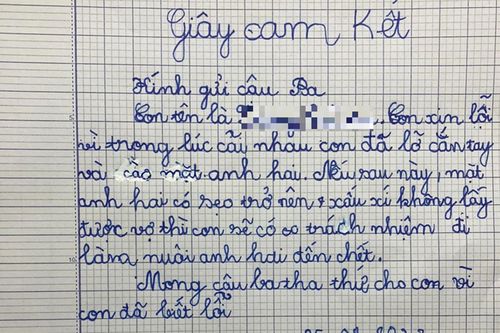 Giấy cam Kết
Kính gửi cậu Ba
Con tên là Con xin lỗi
vì trong lúc cãi nhau con đã lỡ cắn tay
và cào mặt anh hai. Nếu sau này, mặt
anh hai có sẹo trở nên xấu xí không lấy
được vợ thì con sẽ có trách nhiệm đi
làm nuôi anh hai đến chết.
Mong cậu ba tha thứ cho con vì
con đã biết lỗi